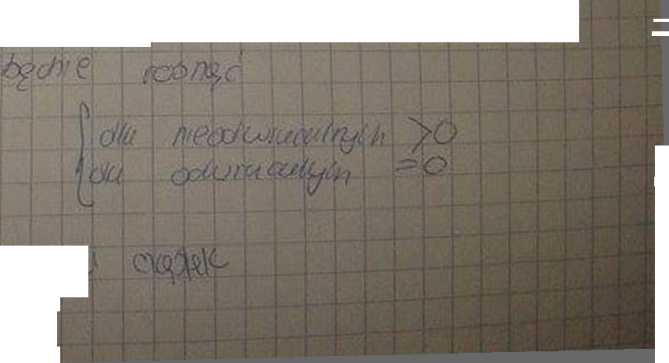 będzie rosnąć
dla nieodwracalnych >0
dla odwracalnych =0
cząstek